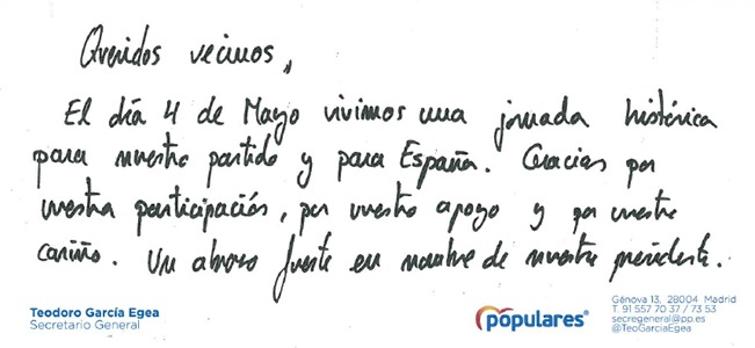 Queridos vecinos,
El día 4 de Mayo vivimos una jornada histórica
para nuestro partido y para España. Gracias por
vuestra participación, por vuestro apoyo y por vuestro
cariño. Un abrazo fuerte en nombre de nuestro presidente.
Teodoro García Egea
Secretario General
populares
Génova 13, 28004 Madrid
T. 91 557 70 37 / 73 53
secregeneral@pp.es
@TeoGarciaEgea